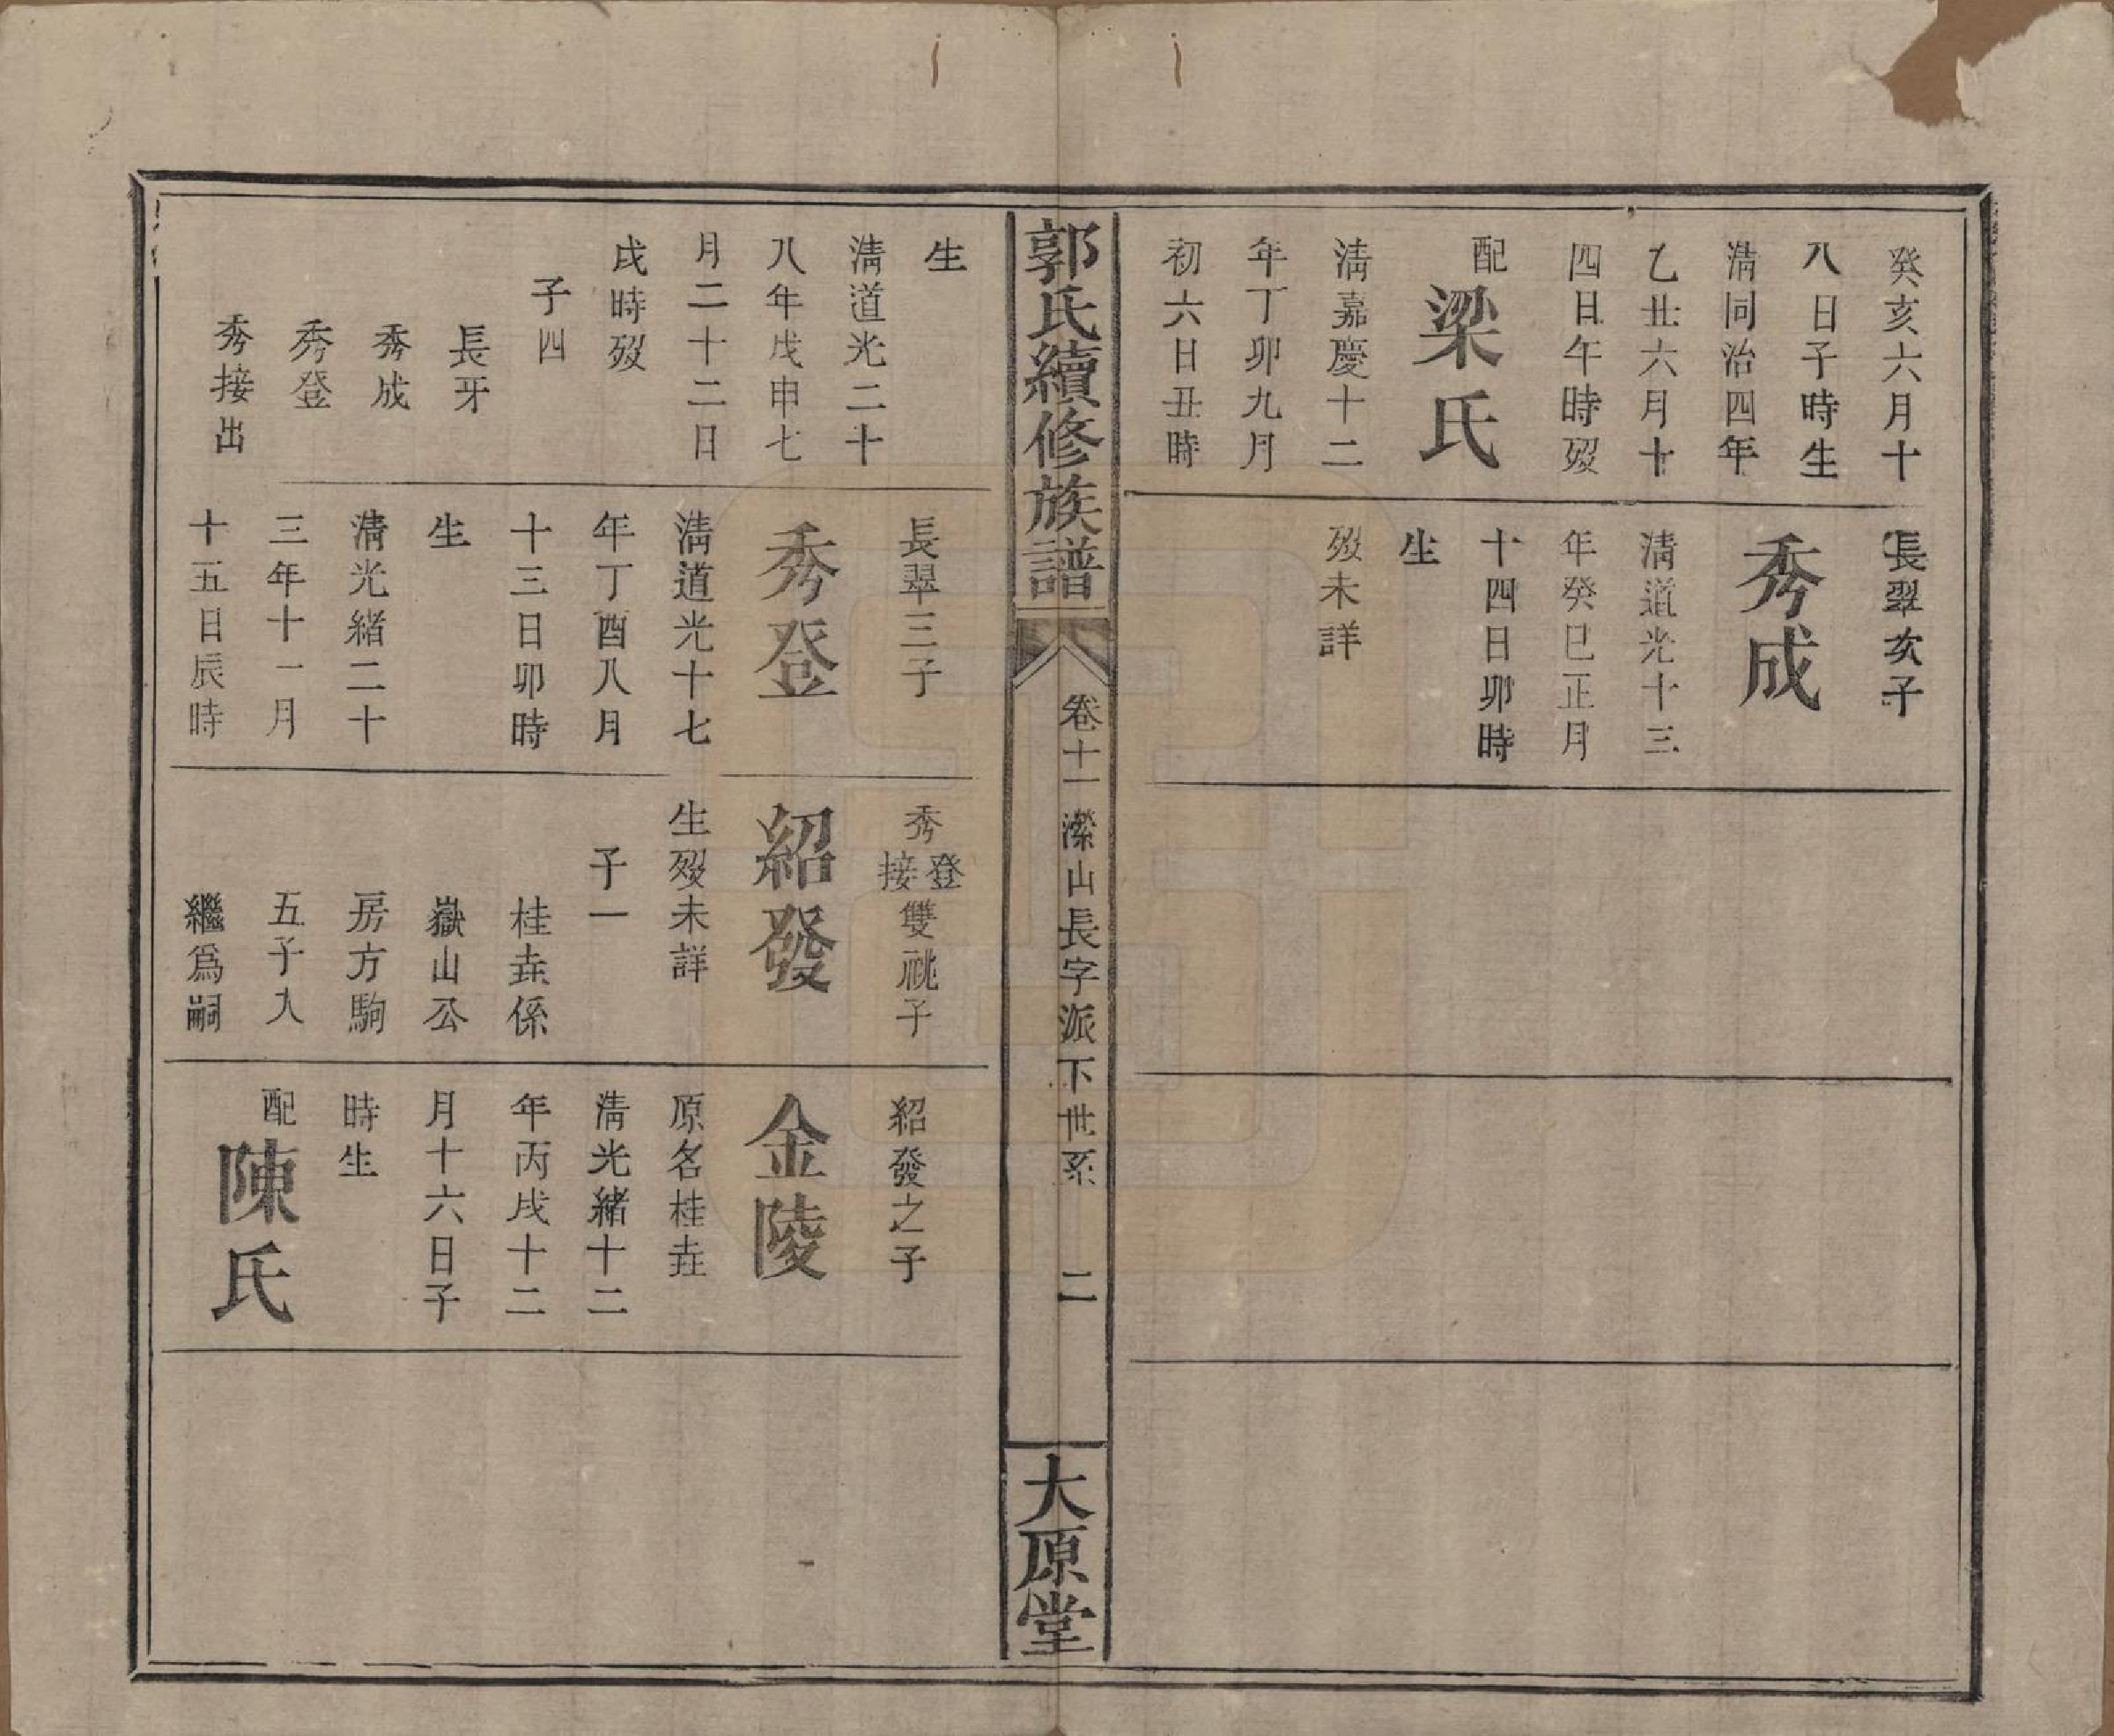 癸亥六月十
八日子時生
清同治四年
乙丑六月十
四日午時歿
配
梁氏
清嘉慶十二
年丁卯九月
初六日丑時
長翠次子
秀成
清道光十三
年癸巳正月
十四日卯時
生
歿未詳
郭氏續修族譜
卷十一 濼山長字派下世系 二
大原堂
生
清道光二十
八年戊申七
月二十二日
戌時歿
子四
長牙
秀成
秀登
秀接出
長翠三子
秀登
清道光十七
年丁酉八月
十三日卯時
生
清光緒二十
三年十一月
十五日辰時
秀登接雙祧子
紹發
生歿未詳
子一
桂垚係
嶽山公
房方駒
五子入
繼爲嗣
紹發之子
金陵
原名桂垚
清光緒十二
年丙戌十二
月十六日子
時生
配
陳氏